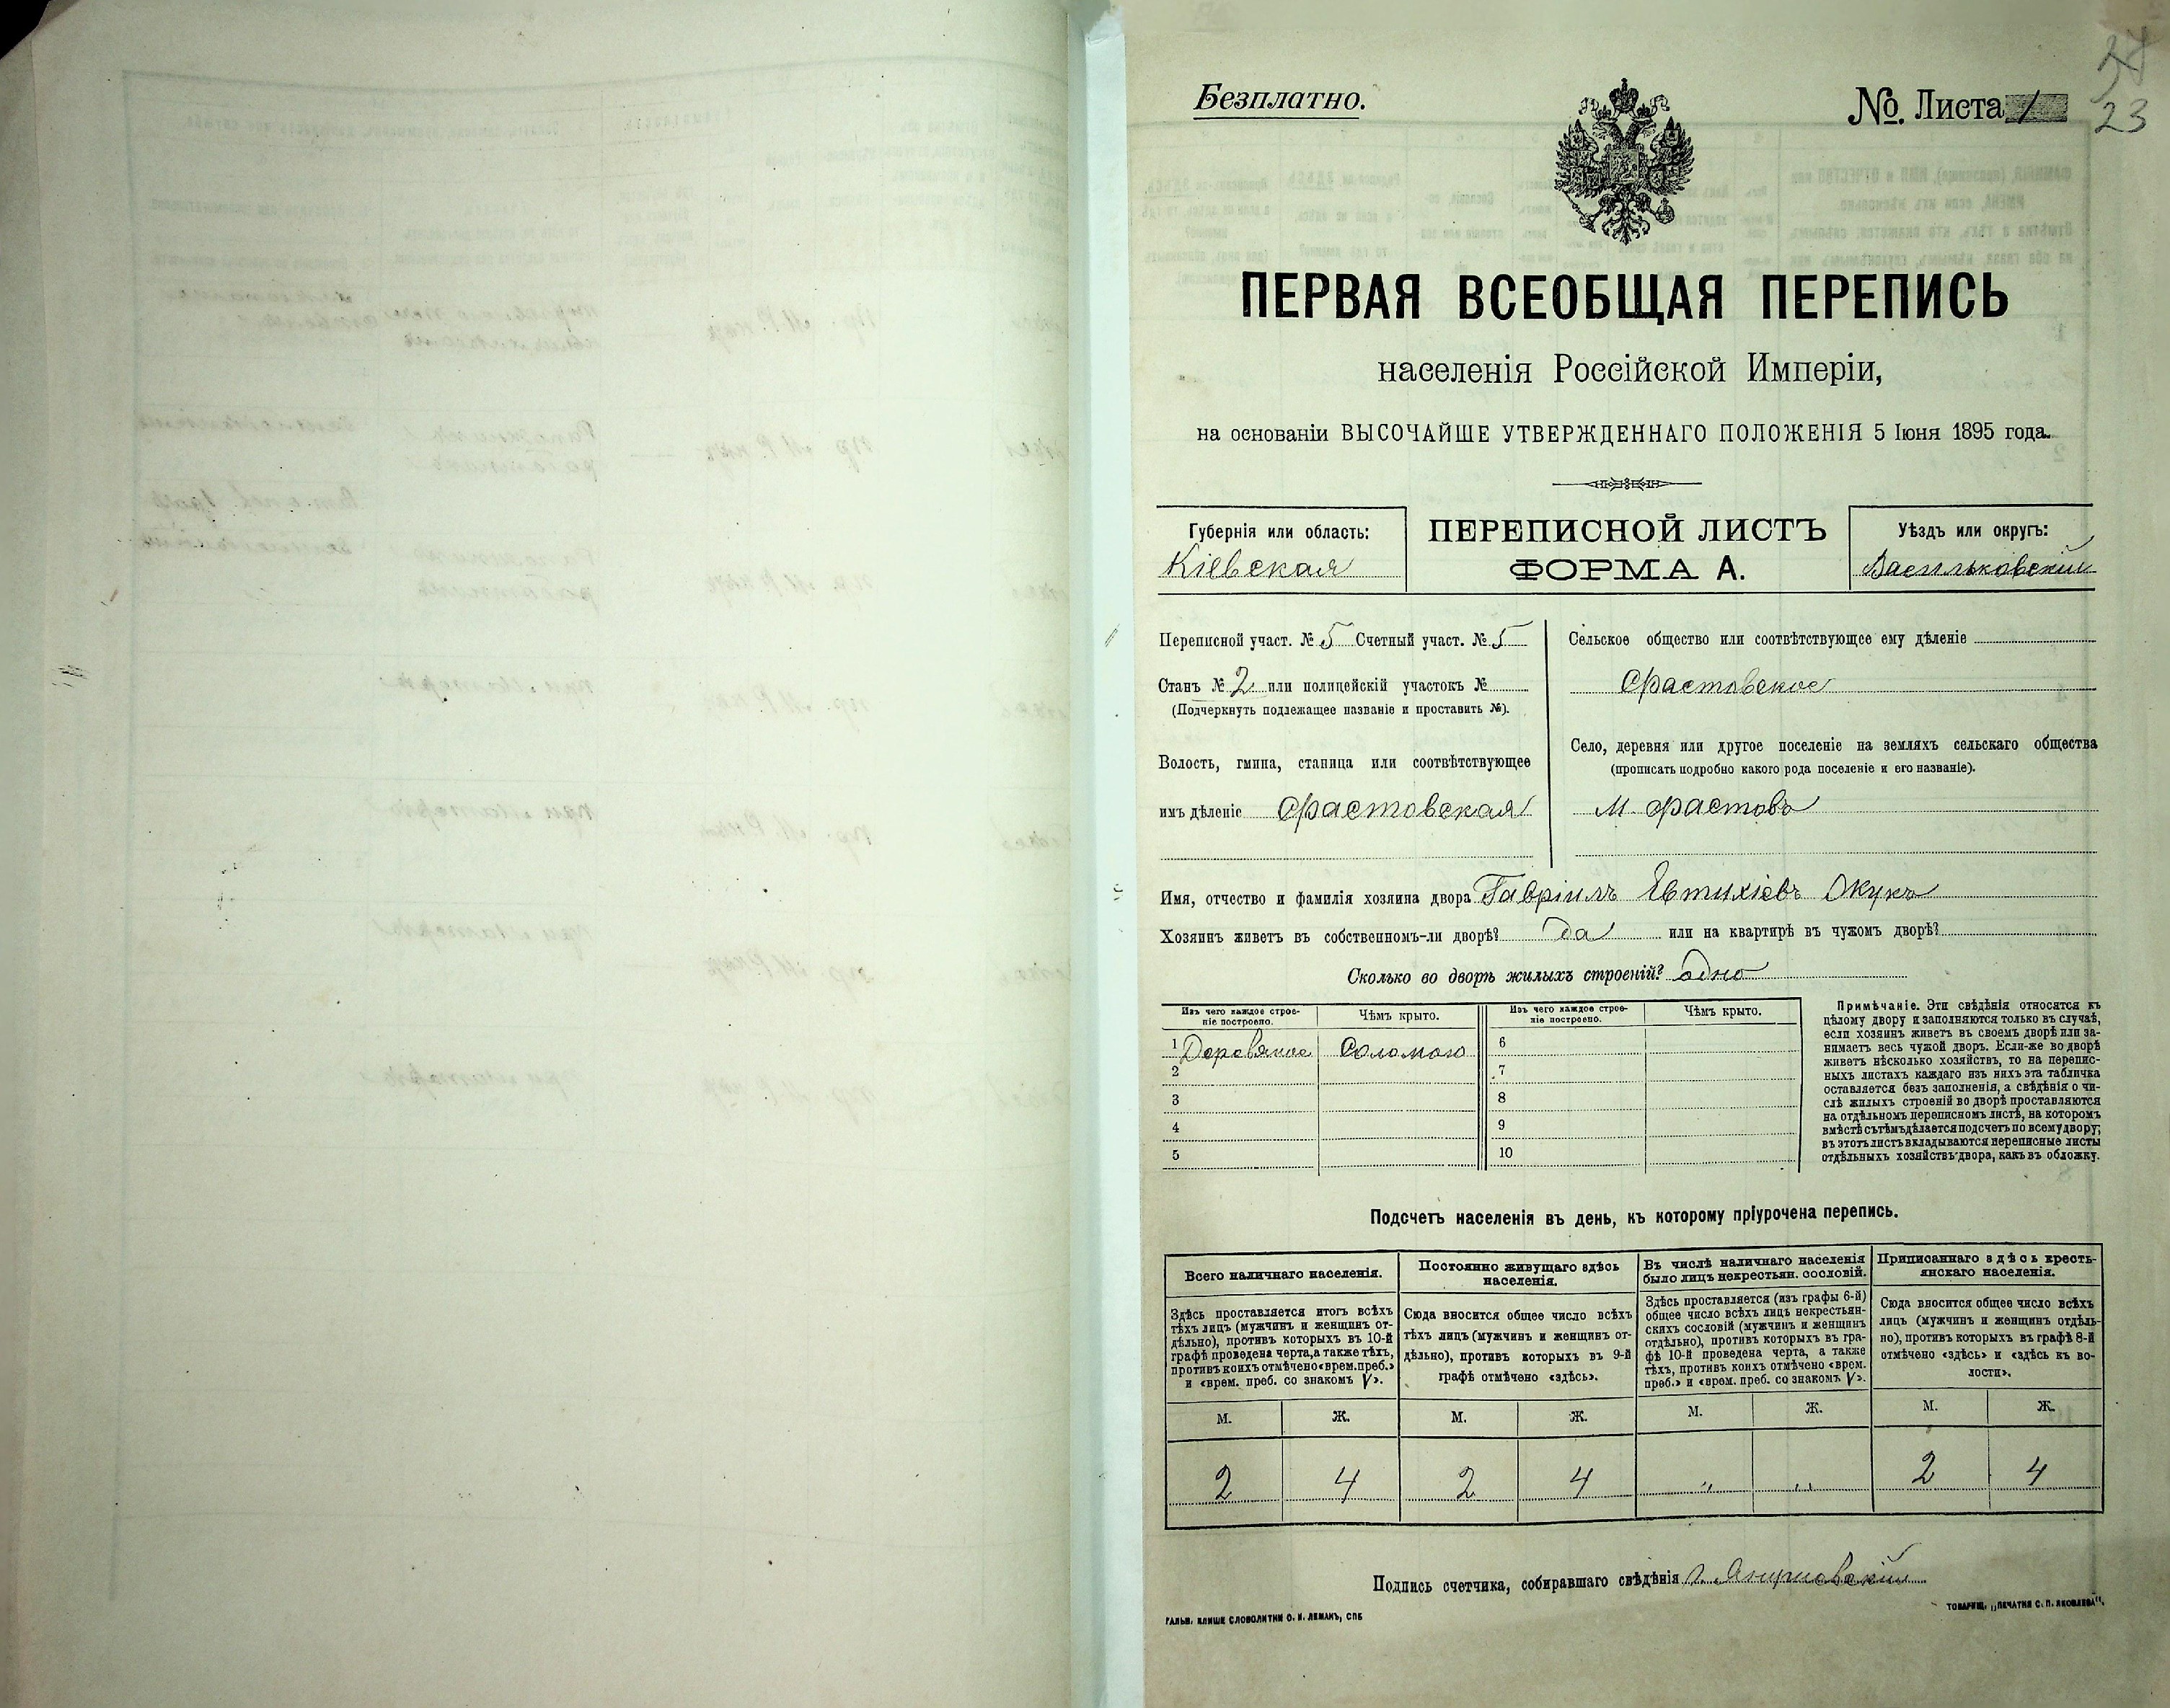 Безплатно.
№. Листа 1
23
ПЕРВАЯ ВСЕОБЩАЯ ПЕРЕПИСЬ
населенія Россійской Имперіи,
на основаніи ВЫСОЧАЙШЕ УТВЕРЖДЕННАГО ПОЛОЖЕНІЯ 5 Іюня 1895 года.
Губернія или область:
Кіевская
ПЕРЕПИСНОЙ ЛИСТЪ
ФОРМА А.
Уѣздъ или округъ:
Васильковскій
Переписной участ. № 5 Счетный участ. № 5
Станъ № 2 или полицейскій участокъ №
(Подчеркнуть подлежащее названіе и проставить №).
Волость, гмина, станица или соотвѣтствующее
имъ дѣленіе Фастовская
Сельское общество или соотвѣтствующее ему дѣленіе
Фастовское
Село, деревня или другое поселеніе на земляхъ сельскаго общества
(прописать подробно какого рода поселеніе и его названіе).
М. Фастовъ
Имя, отчество и фамилія хозяина двора Гавріилъ Евтихіевъ
Хозяинъ живетъ въ собственномъ-ли дворѣ? Да или на квартирѣ въ чужомъ дворѣ?
Сколько во дворѣ жилыхъ строеній? Одно
Изъ чего каждое строе-
ніе построено.
Чѣмъ крыто.
Изъ чего каждое строе-
ніе построено.
Чѣмъ крыто.
1 Деревяное Соломою 6
2 7
3 8
4 9
5 10
Примѣчаніе. Эти свѣдѣнія относятся къ
цѣлому двору и заполняются только въ случаѣ,
если хозяинъ живетъ въ своемъ дворѣ или за-
нимаетъ весь чужой дворъ. Если-же во дворѣ
живетъ нѣсколько хозяйствъ, то на перепис-
ныхъ листахъ каждаго изъ нихъ эта табличка
оставляется безъ заполненія, а свѣдѣнія о чи-
слѣ жилыхъ строеній во дворѣ проставляются
на отдѣльномъ переписномъ листѣ, на которомъ
вмѣстѣ съ тѣмъ дѣлается подсчетъ по всему двору;
въ этотъ листъ вкладываются переписные листы
отдѣльныхъ хозяйствъ двора, какъ въ обложку.
Подсчетъ населенія въ день, къ которому пріурочена перепись.
Всего наличнаго населенія.
Здѣсь проставляется итогъ всѣхъ
тѣхъ лицъ (мужчинъ и женщинъ от-
дѣльно), противъ которыхъ въ 10-й
графѣ проведена черта, а также тѣхъ,
противъ коихъ отмѣчено «врем. преб.»
и «врем. преб. со знакомъ V».
Постоянно живущаго здѣсь
населенія.
Сюда вносится общее число всѣхъ
тѣхъ лицъ (мужчинъ и женщинъ от-
дѣльно), противъ которыхъ въ 9-й
графѣ отмѣчено «здѣсь».
Въ числѣ наличнаго населенія
было лицъ некрестьян. сословій.
Здѣсь проставляется (изъ графы 6-й)
общее число всѣхъ лицъ некрестьян-
скихъ сословій (мужчинъ и женщинъ
отдѣльно), противъ которыхъ въ гра-
фѣ 10-й проведена черта, а также
тѣхъ, противъ коихъ отмѣчено «врем.
преб.» и «врем. преб. со знакомъ V».
Приписаннаго здѣсь кресть-
янскаго населенія.
Сюда вносится общее число всѣхъ
лицъ (мужчинъ и женщинъ отдѣль-
но), противъ которыхъ въ графѣ 8-й
отмѣчено «здѣсь» и «здѣсь къ во-
лости».
М. Ж. М. Ж. М. Ж. М. Ж.
2 4 2 4 " " 2 4
Подпись счетчика, собиравшаго свѣдѣнія
ГАЛЬВ. КЛИШЕ СЛОВОЛИТНИ О. И. ЛЕМАНЪ, СПБ
ТОВАРИЩ. „ПЕЧАТНЯ С. П. ЯКОВЛЕВА".